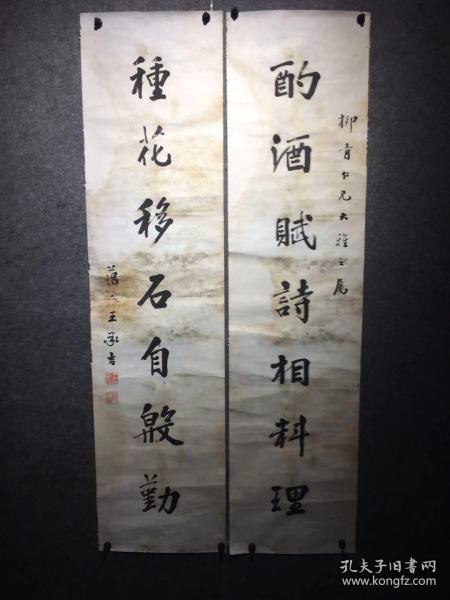 酌酒賦詩相料理
柳青仁兄大雅之屬
種花移石自殷勤
王承吉
孔夫子旧书网
www.kongfz.com